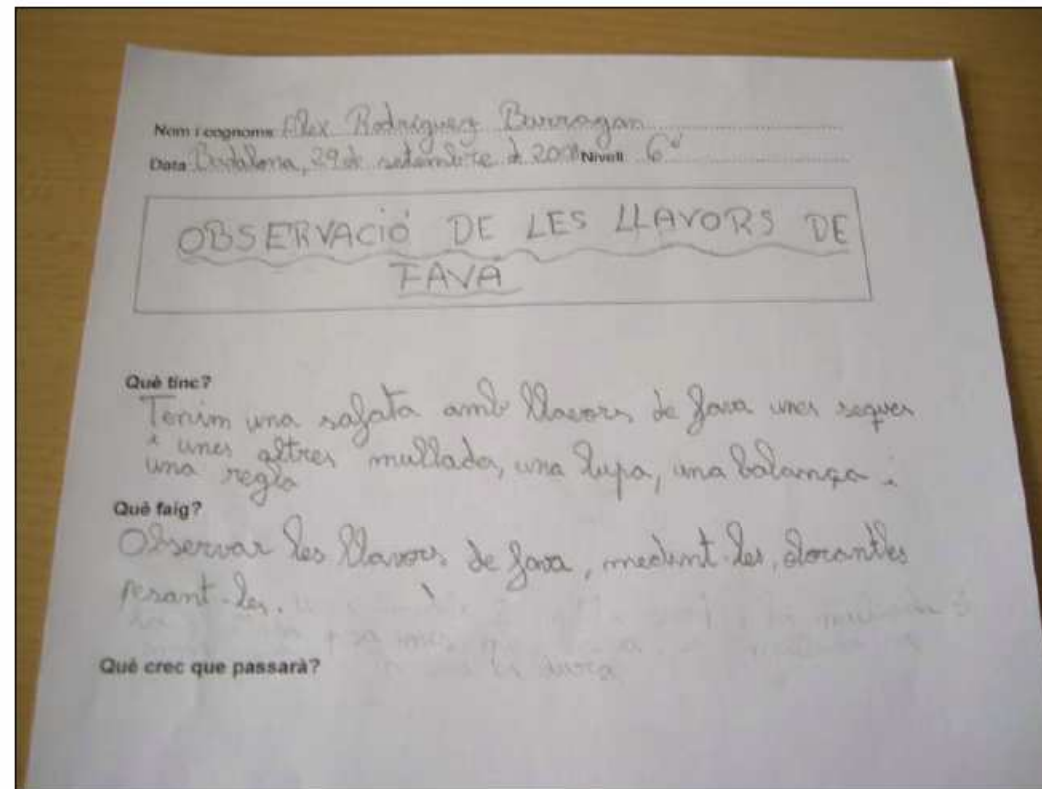 Nom i cognoms Alex Rodriguez Burragan
Data Badalona, 29 de setembre d Nivell 6è
OBSERVACIÓ DE LES LLAVORS DE
FAVA
Què tinc?
Tenim una safata amb llavors de fava unes seques
i unes altres mullades, una lupa, una balança i
una regla
Què faig?
Observar les llavors de fava, medint-les,
pesant-les.
mullada
Què crec que passarà?
dura